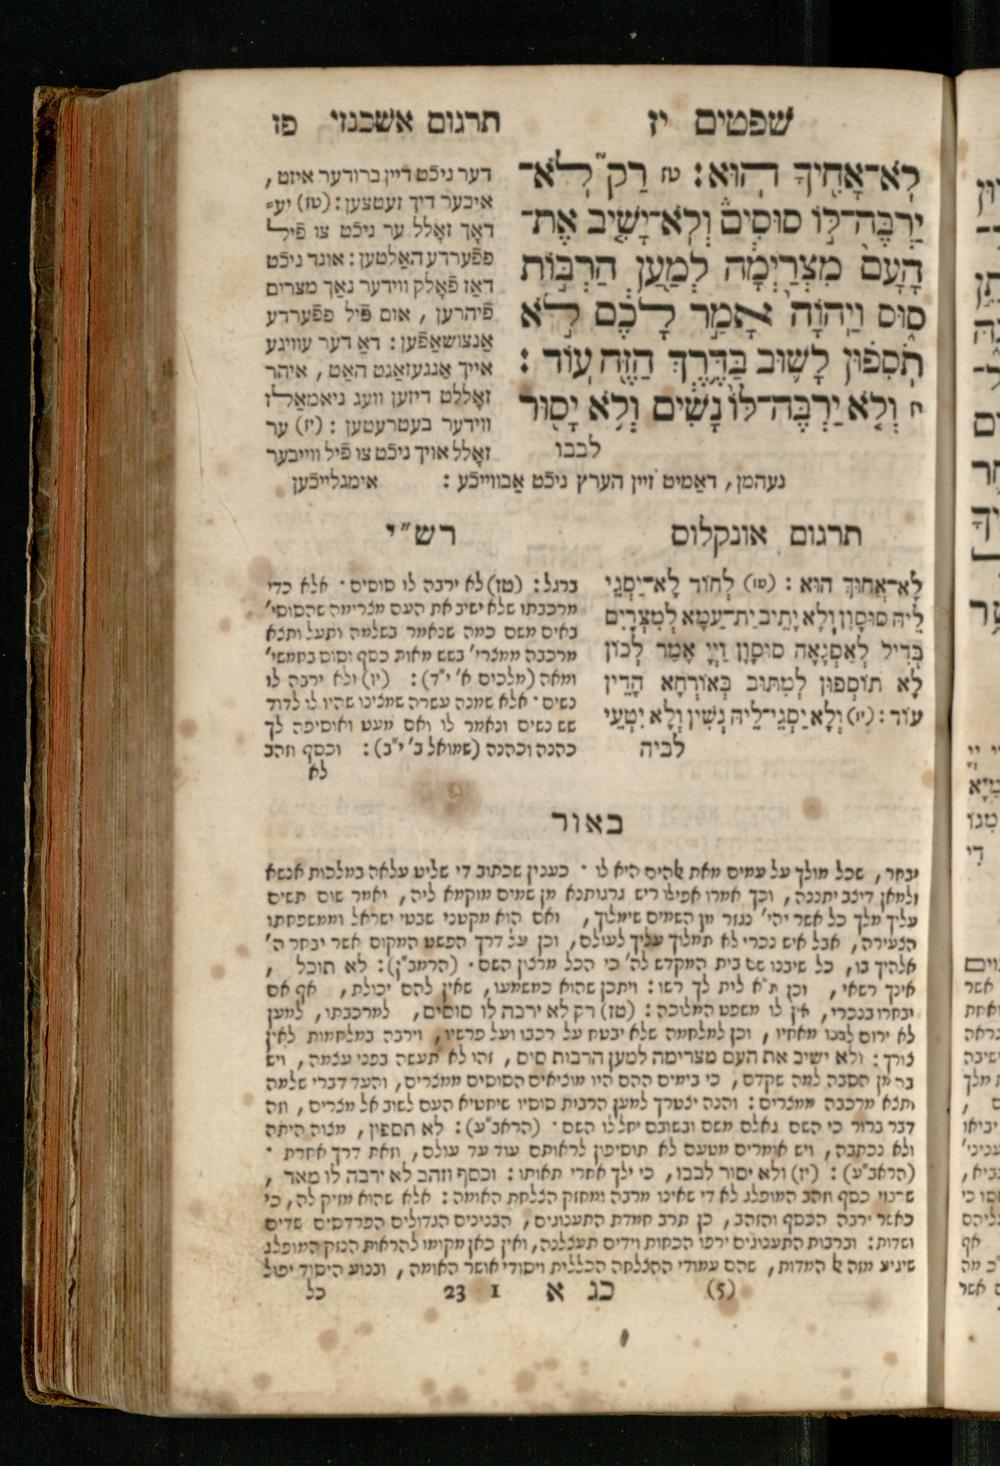 שפטים יז תרגום אשכנזי פז
לֹא־אָחִיךָ הוּא׃ טז רַק לֹא־
יַרְבֶּה־לּוֹ סוּסִים וְלֹא־יָשִׁיב אֶת־
הָעָם מִצְרַיְמָה לְמַעַן הַרְבּוֹת
סוּס וַיהוָֹה אָמַר לָכֶם לֹא
תֹסִפוּן לָשׁוּב בַּדֶּרֶךְ הַזֶּה עוֹד׃
יז וְלֹא יַרְבֶּה־לּוֹ נָשִׁים וְלֹא יָסוּר
לבבו
דער ניכֿט דיין ברודער איזט,
איבער דיך זעטצען: (טז) יע⸗
דאָך זאָלל ער ניכֿט צו פֿיל
פפֿערדע האַלטען: אונד ניכֿט
דאַז פֿאָלק ווידער נאַך מצרים
פֿיהרען, אום פֿיל פפֿערדע
אַנצושאַפֿען: דאַ דער עוויגע
אייך אַנגעזאַגט האַט, איהר
זאָללט דיזען וועג ניאמאַלז
ווידער בעטרעטען: (יז) ער
זאָלל אויך ניכֿט צו פֿיל ווייבער
נעהמן, דאַמיט זיין הערץ ניכֿט אַבווייכֿע: אימגלייכֿען
תרגום אונקלוס רש״י
לָא־אָחוּךְ הוּא: (טז) לְחוֹד לָא־יַסְגֵי
לֵיהּ סוּסָוָן וְלָא יָתֵיב יַת־עַמָא לְמִצְרָיִם
בְּדִיל לְאַסְגָאָה סוּסָוָן וַיְיָ אָמַר לְכוֹן
לָא תוֹסְפוּן לְמִתּוּב בְּאוֹרְחָא הָדֵין
עוֹד: (יז) וְלָא יַסְגֵי־לֵיהּ נְשִׁין וְלָא יִטְעֵי
לביה
ברגל: (טז) לא ירבה לו סוסים · אלא כדי
מרכבתו שלא ישיב את העם מצרימה שהסוסי'
באים משם כמה שנאמר בשלמה ותעל ותצא
מרכבה ממצרי' בשש מאות כסף וסוס בחמשי'
ומאה (מלכים א' י״ד): (יז) ולא ירבה לו
נשים · אלא שמנה עשרה שמצינו שהיו לו לדוד
שש נשים ונאמר לו ואם מעט ואוסיפה לך
כהנה וכהנה (שמואל ב' י״ב): וכסף וזהב
לא
באור
יבחר, שכל מולך על עמים מאת אלהים היא לו · כענין שכתוב די שליט עלאה במלכות אנשא
ולמאן דיצב יתננה, וכך אמרו אפילו ריש גרגותנא מן שמים מוקמא ליה, ויאמר שום תשים
עליך מלך כל אשר יהי' נגזר מן השמים שימלוך, ואם הוא מקטני שבטי ישראל וממשפחתו
הצעירה, אבל איש נכרי לא תמליך עליך לעולם, וכן על דרך הפשט המקום אשר יבחר ה'
אלהיך בו, כל שיבנו שם בית המקדש לה' כי הכל מרצון השם · (הרמב״ן): לא תוכל ,
אינך רשאי, וכן ת״א לית לך רשו: ויתכן שהוא כמשמעו, שאין להם יכולת, אף אם
יבחרו בנכרי, אין לו משפט המלוכה: (טז) רק לא ירבה לו סוסים, למרכבתו, למען
לא ירום לבבו מאחיו, וכן למלחמה שלא יבטח על רכבו ועל פרשיו, וירבה במלחמות לאין
צורך: ולא ישיב את העם מצרימה למען הרבות סוס, זהו לא תעשה בפני עצמה, ויש
בה מן הסבה למה שקדם, כי בימים ההם היו מוציאים הסוסים ממצרים, והעד דברי שלמה
ותצא מרכבה ממצרים: והנה יצטרך למען הרבות סוסיו שיחטיא העם לשוב אל מצרים, וזה
דבר ברור כי השם גאלם משם ובשובם יחללו השם · (הראב״ע): לא תספון, מצוה היתה
ולא נכתבה, ויש אומרים מטעם לא תוסיפון לראותם עוד עד עולם, וזאת דרך אחרת ·
(הראב״ע): (יז) ולא יסור לבבו, כי ילך אחרי תאותו: וכסף וזהב לא ירבה לו מאד,
שרבוי כסף וזהב המופלג לא די שאינו מרבה ומחזק הצלחת האומה: אלא שהוא מזיק לה, כי
כאשר ירבה הכסף והזהב, כן תרב חמדת התענוגים, הבנינים הגדולים הפרדסים שדים
ושדות: וברבות התענוגים ירפו הכחות וידים תעצלנה, ואין כאן מקומו להראות הנזק המופלג
שיגיע מזה אל המדות, שהם עמודי ההצלחה הכללית ויסודי אושר האומה, ובנוע היסוד יפול
(5) כג א 1 23 כל